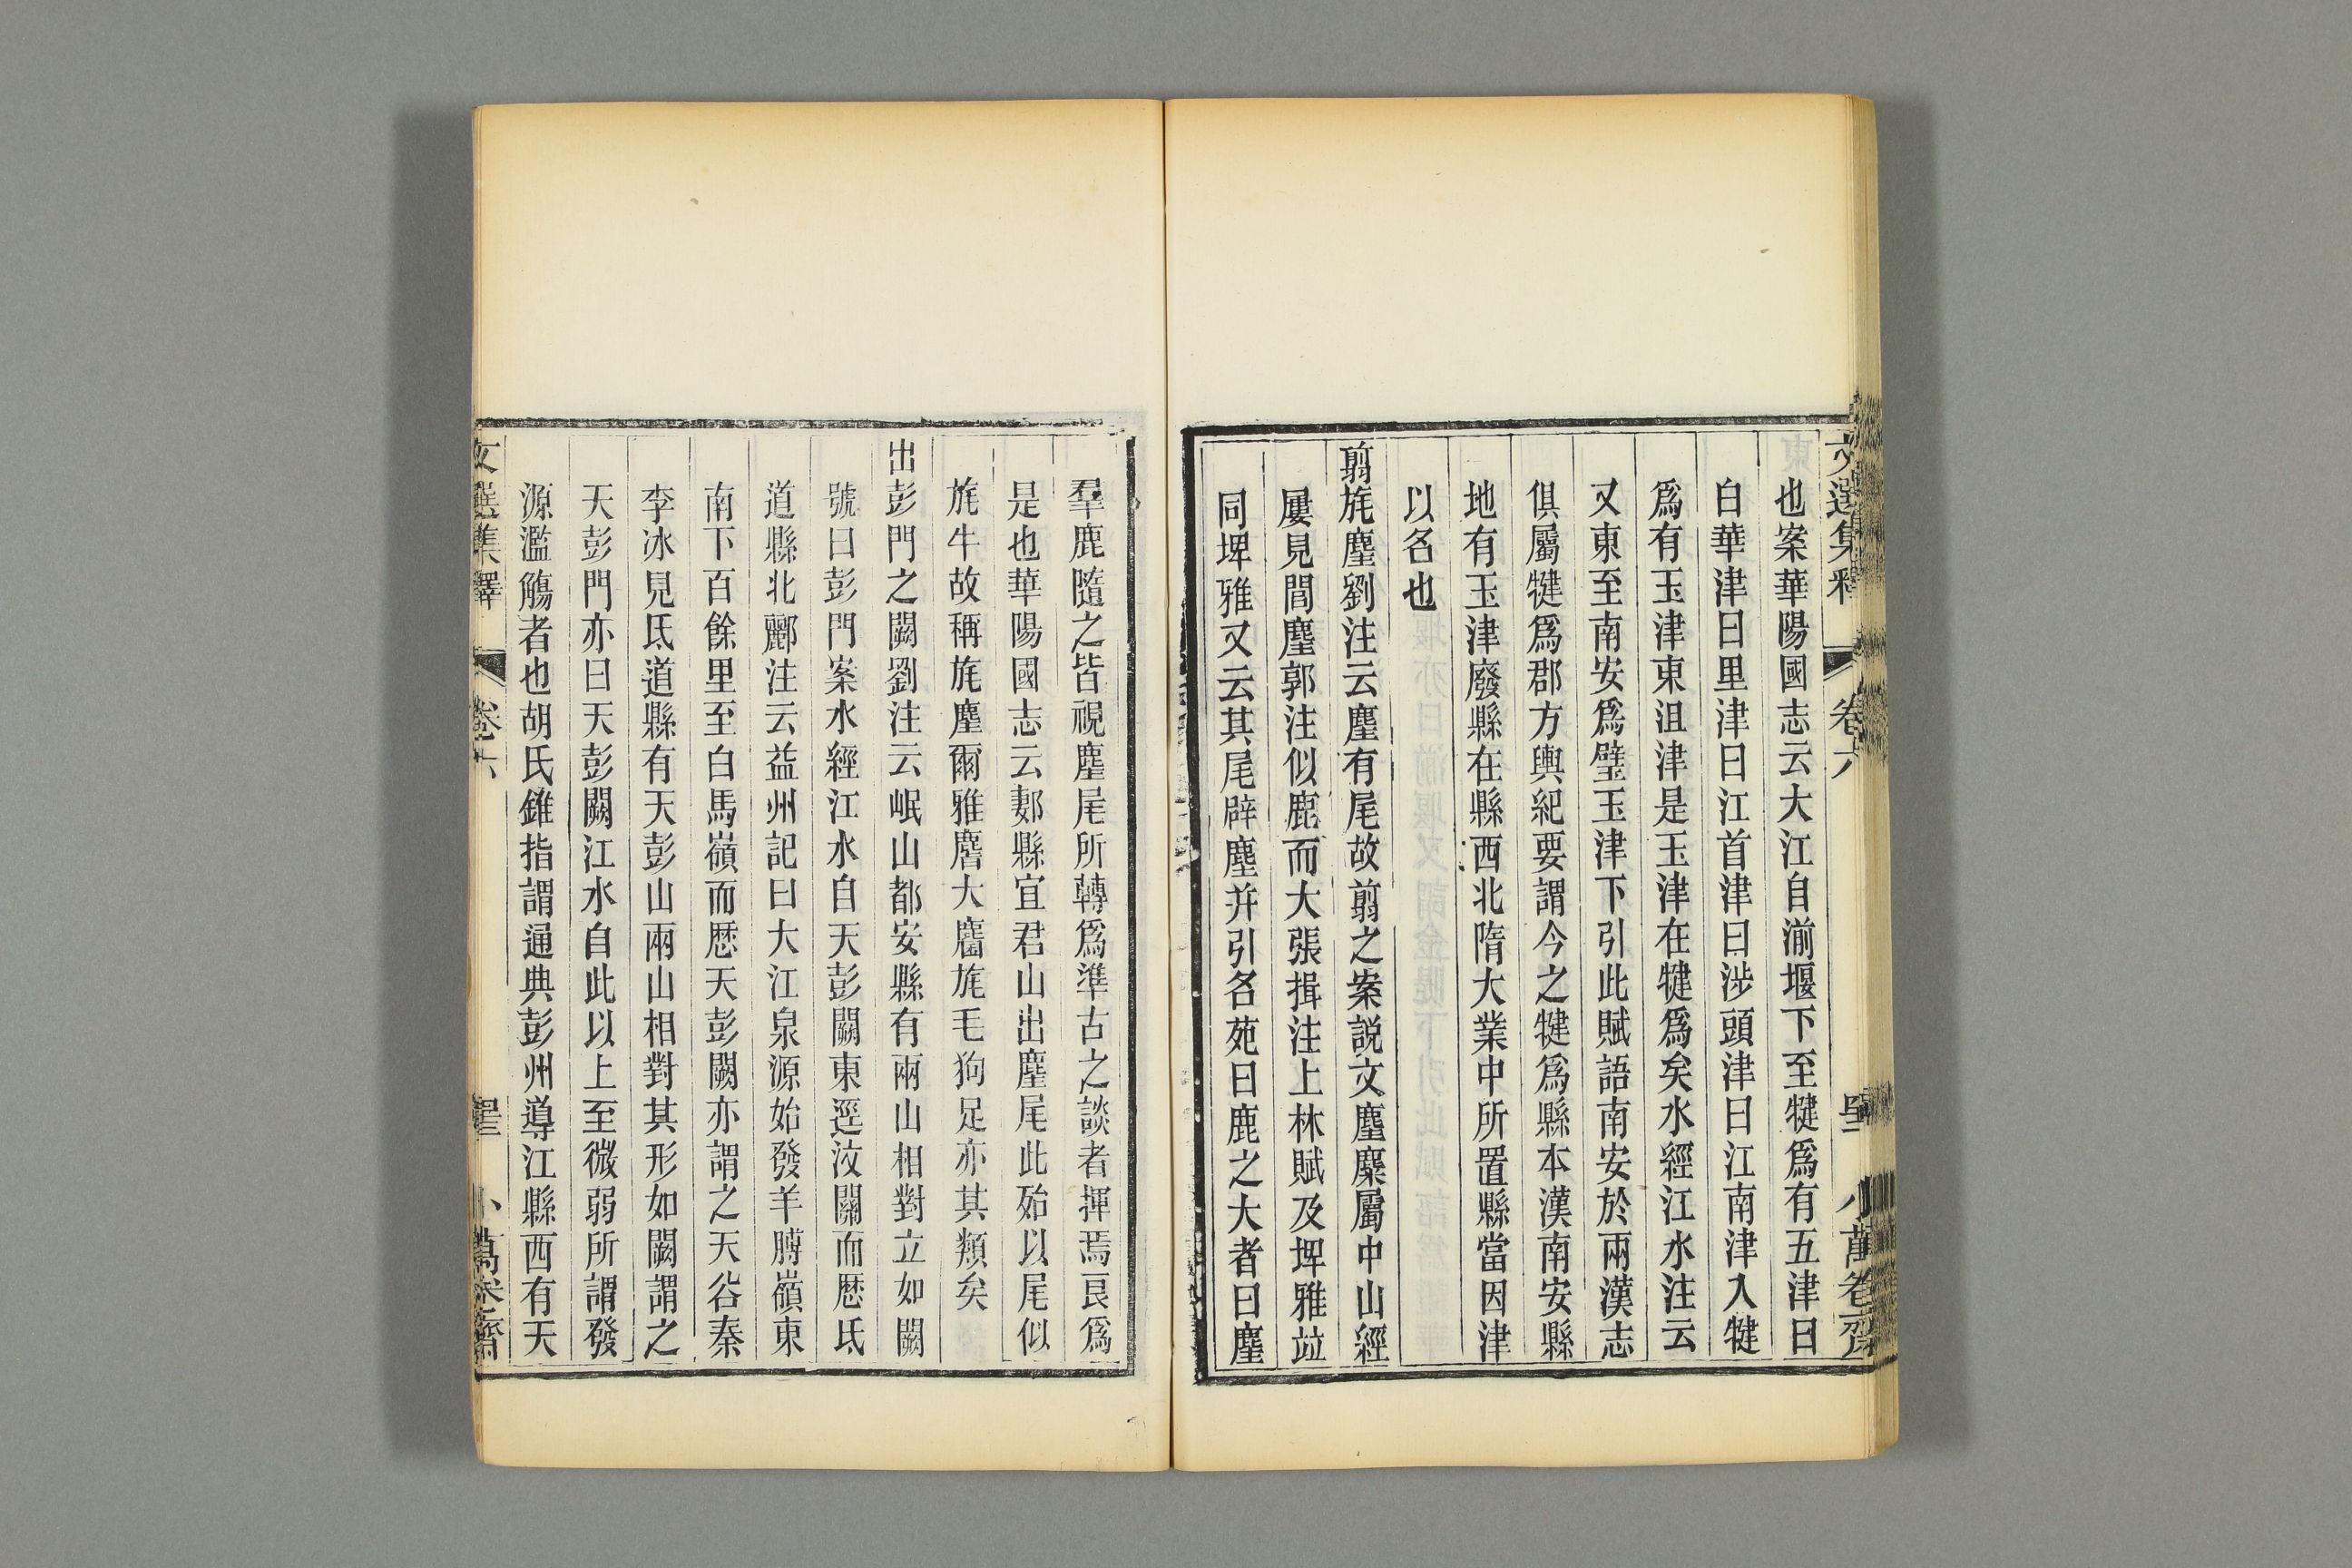 文選集釋 卷六 小萬卷齋
也案華陽國志云大江自湔堰下至犍爲有五津曰
白華津曰里津曰江首津曰涉頭津曰江南津入犍
爲有玉津東沮津是玉津在犍爲矣水經江水注云
又東至南安爲璧玉津下引此賦語南安於兩漢志
俱屬犍爲郡方輿紀要謂今之犍爲縣本漢南安縣
地有玉津廢縣在縣西北隋大業中所置縣當因津
以名也
翦旄麈劉注云麈有尾故翦之案說文麈麋屬中山經
屢見閭麈郭注似鹿而大張揖注上林賦及埤雅竝
同埤雅又云其尾辟塵并引名苑曰鹿之大者曰麈
羣鹿隨之皆視麈尾所轉爲準古之談者揮焉良爲
是也華陽國志云郪縣宜君山出麈尾此殆以尾似
旄牛故稱旄麈爾雅麔大麕旄毛狗足亦其類矣
出彭門之闕劉注云岷山都安縣有兩山相對立如闕
號曰彭門案水經江水自天彭闕東逕汶關而歷氐
道縣北酈注云益州記曰大江泉源始發羊膊嶺東
南下百餘里至白馬嶺而歷天彭闕亦謂之天谷秦
李冰見氐道縣有天彭山兩山相對其形如闕謂之
天彭門亦曰天彭闕江水自此以上至微弱所謂發
源濫觴者也胡氏錐指謂通典彭州導江縣西有天
文選集釋 卷六 小萬卷齋